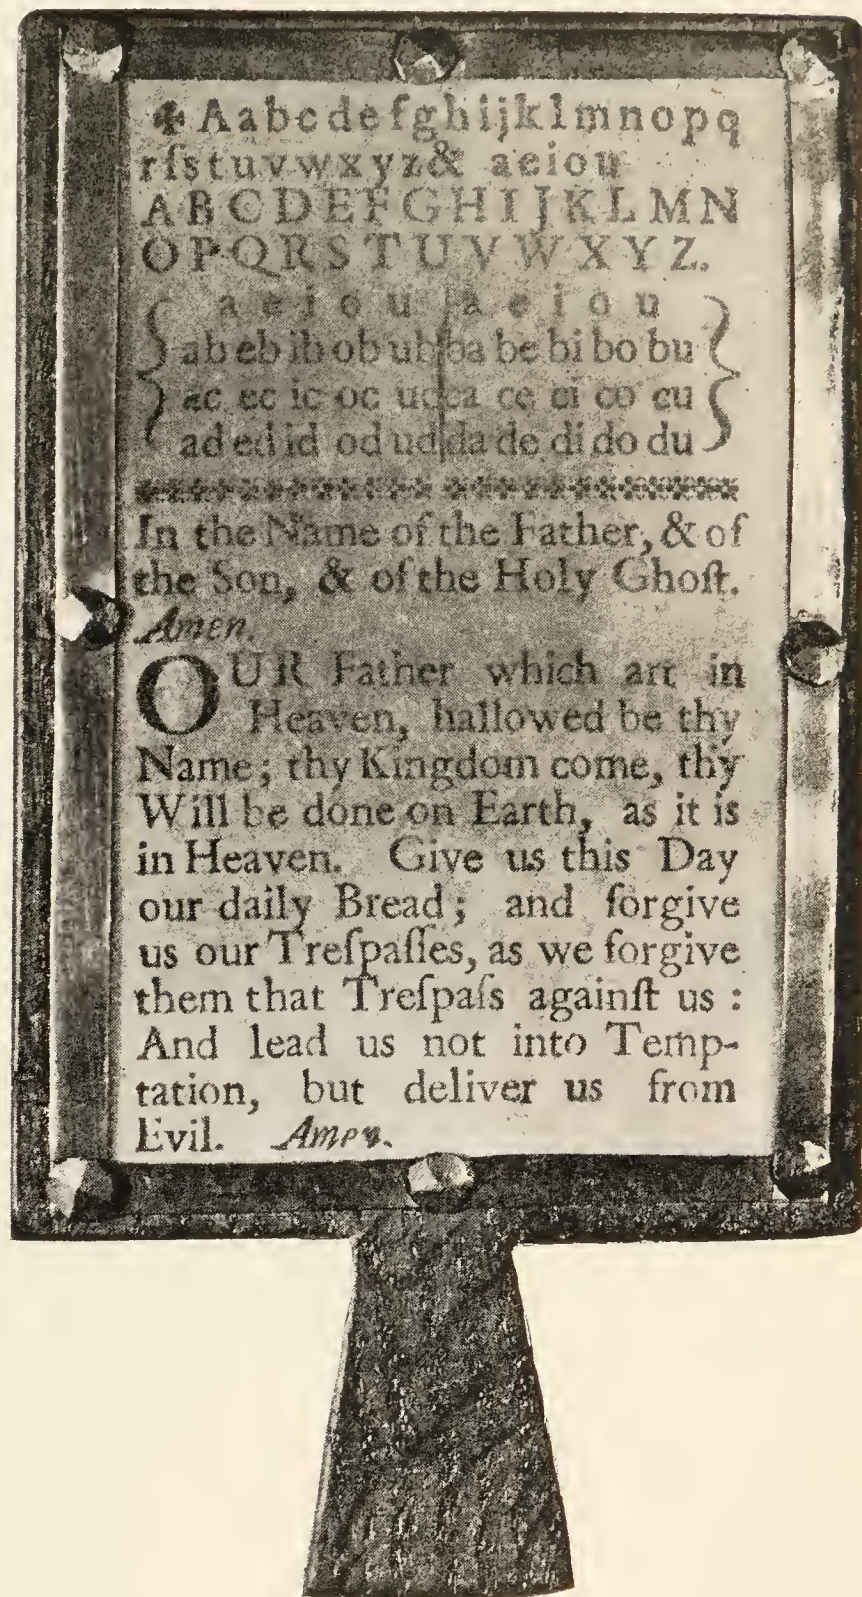 ✠ Aabcdefghijklmnopq
rſstuvwxyz& aeiou
ABCDEFGHIJKLMN
OPQRSTUVWXYZ.
a e i o u | a e i o u
ab eb ib ob ub | ba be bi bo bu
ac ec ic oc uc | ca ce ci co cu
ad ed id od ud | da de di do du
In the Name of the Father, & of
the Son, & of the Holy Ghoſt.
Amen.
OUR Father which art in
Heaven, hallowed be thy
Name; thy Kingdom come, thy
Will be done on Earth, as it is
in Heaven. Give us this Day
our daily Bread; and forgive
us our Treſpaſſes, as we forgive
them that Treſpaſs againſt us :
And lead us not into Temp-
tation, but deliver us from
Evil. Amen.